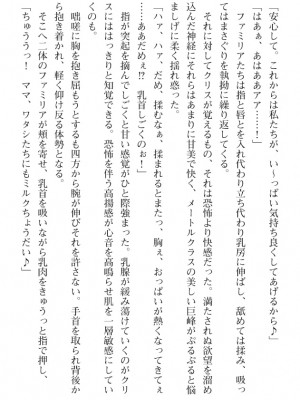 「安心して。これからは私たちが、い～っぱい気持ち良くしてあげるから♪」
「はぁぁ、あはああアア……！」
　ファミリアたちは指と唇とを入れ代わり立ち代わり乳房に伸ばし、舐めては揉み、吸っ
てはまさぐりを執拗に繰り返してくる。
　それに対してクリスが覚えるもの、それは恐怖より快感だった。満たされぬ欲望を溜め
込んだ神経にそれらはあまりに甘美で快く、メートルクラスの美しい巨峰がぷるぷると悩
ましげに柔く揺れ惑った。
「ハァ、ハァ、だめ、揉むなぁ、揉まれるとまたっ、胸ぇ、おっぱいが熱くなってぇ
……ああだめぇ!?　乳首しごくのぉー！」
　指が突起を摘んでしごくと甘い感覚がひと際強まった。乳腺が緩み蕩けていくのがクリ
スにははっきりと知覚できる。恐怖を伴う高揚感が心音を高鳴らせ肌を一層敏感にしてい
くのも。
　咄嗟に胸を抱き屈もうとするも四方から腕が伸びそれを許さない。手首を取られ背後か
ら抱き着かれ、軽く仰け反る体勢となる。
　そこへ二体のファミリアが頬を寄せ、乳首を吸いながら乳肉をきゅうっと指で押し、
「ちゅううっ！　ママ、ワタシたちにもミルクちょうだい♪」